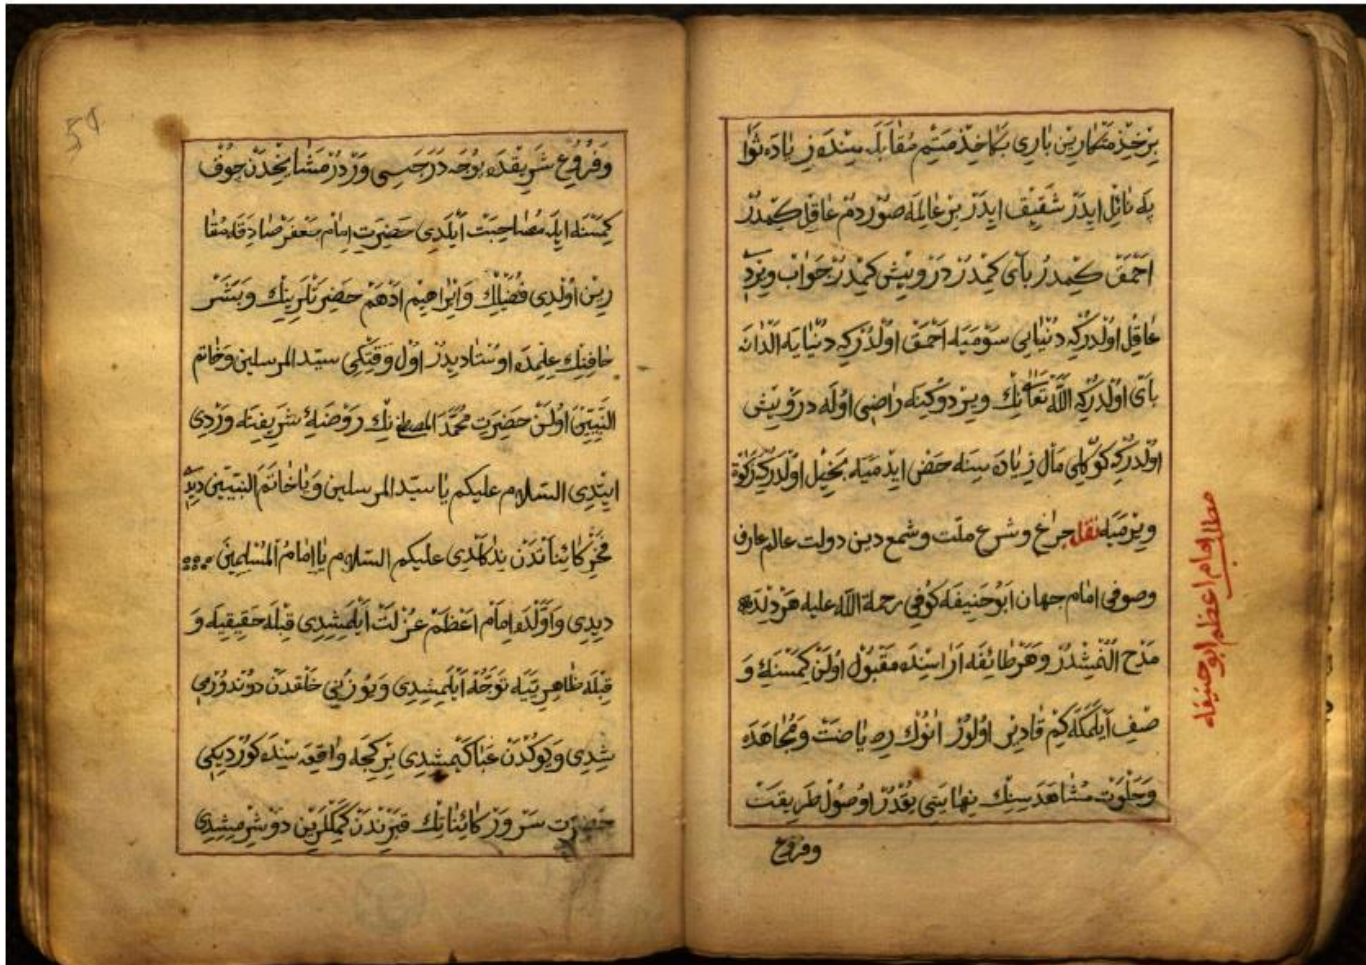 برخذمتكارين باري بكا خذمتم مقابله سنده زياده ثوا
به نائل ايدر شقيق ايدر بر عالمه صوردم عاقل كمدر
احمق كمدر باى كمدر درويش كمدر جواب ويردى
عاقل اولدركه دنيايى سوميه احمق اولدركه دنيايه الدانه
باى اولدركه الله تعالى نك ويردوكنه راضى اوله درويش
اولدركه كوكلى مال زياده سنه حض ايدميه بخيل اولدركه زكوة
ويرميه نقل چراغ وشرع ملت وشمع دين دولت عالم عارف
وصوفى امام جهان ابو حنيفه كوفى رحمة الله عليه هر ديلده
مدح النمشدر وهر طائفه اراسنده مقبول اولن كمسنه و
صف ايلمكه كم قادر اولور انوك رياضت ومجاهده
وخلوت مشاهده سنك نهايتى يوقدر اوصول طريقت
وفروع
مطلب امام اعظم ابو حنيفه
وفروع شريقده يوجه درجسى وردر مشايخدن چوق
كمسنه ايله مصاحبت ايلدى حضرت امام جعفر صادقه مقا
رين اولدى فضيلك وابراهيم ادهم حضرتلرينك وبشر
حافنك علمده اوستاديدر اول وقتكى سيد المرسلين وخاتم
النبيين اولن حضرت محمد المصطفى نك روضهٔ شريفنه وردى
ايتدى السلام عليكم يا سيد المرسلين ويا خاتم النبيين ديدى
فخر كائناتدن ندا كلدى عليكم السلام يا امام المسلمين
ديدى واولده امام اعظم عزلت ايلمشدى قبله حقيقيه و
قبله ظاهريتيه توجه ايلمشدى ويوزنى خلقدن دوندورمى
شدى وكوكدن عبا كيمشدى بر كجه واقعه سنده كورديكى
حضرت سرور كائناتك قبرندن كمكلرين دوشرمشدى